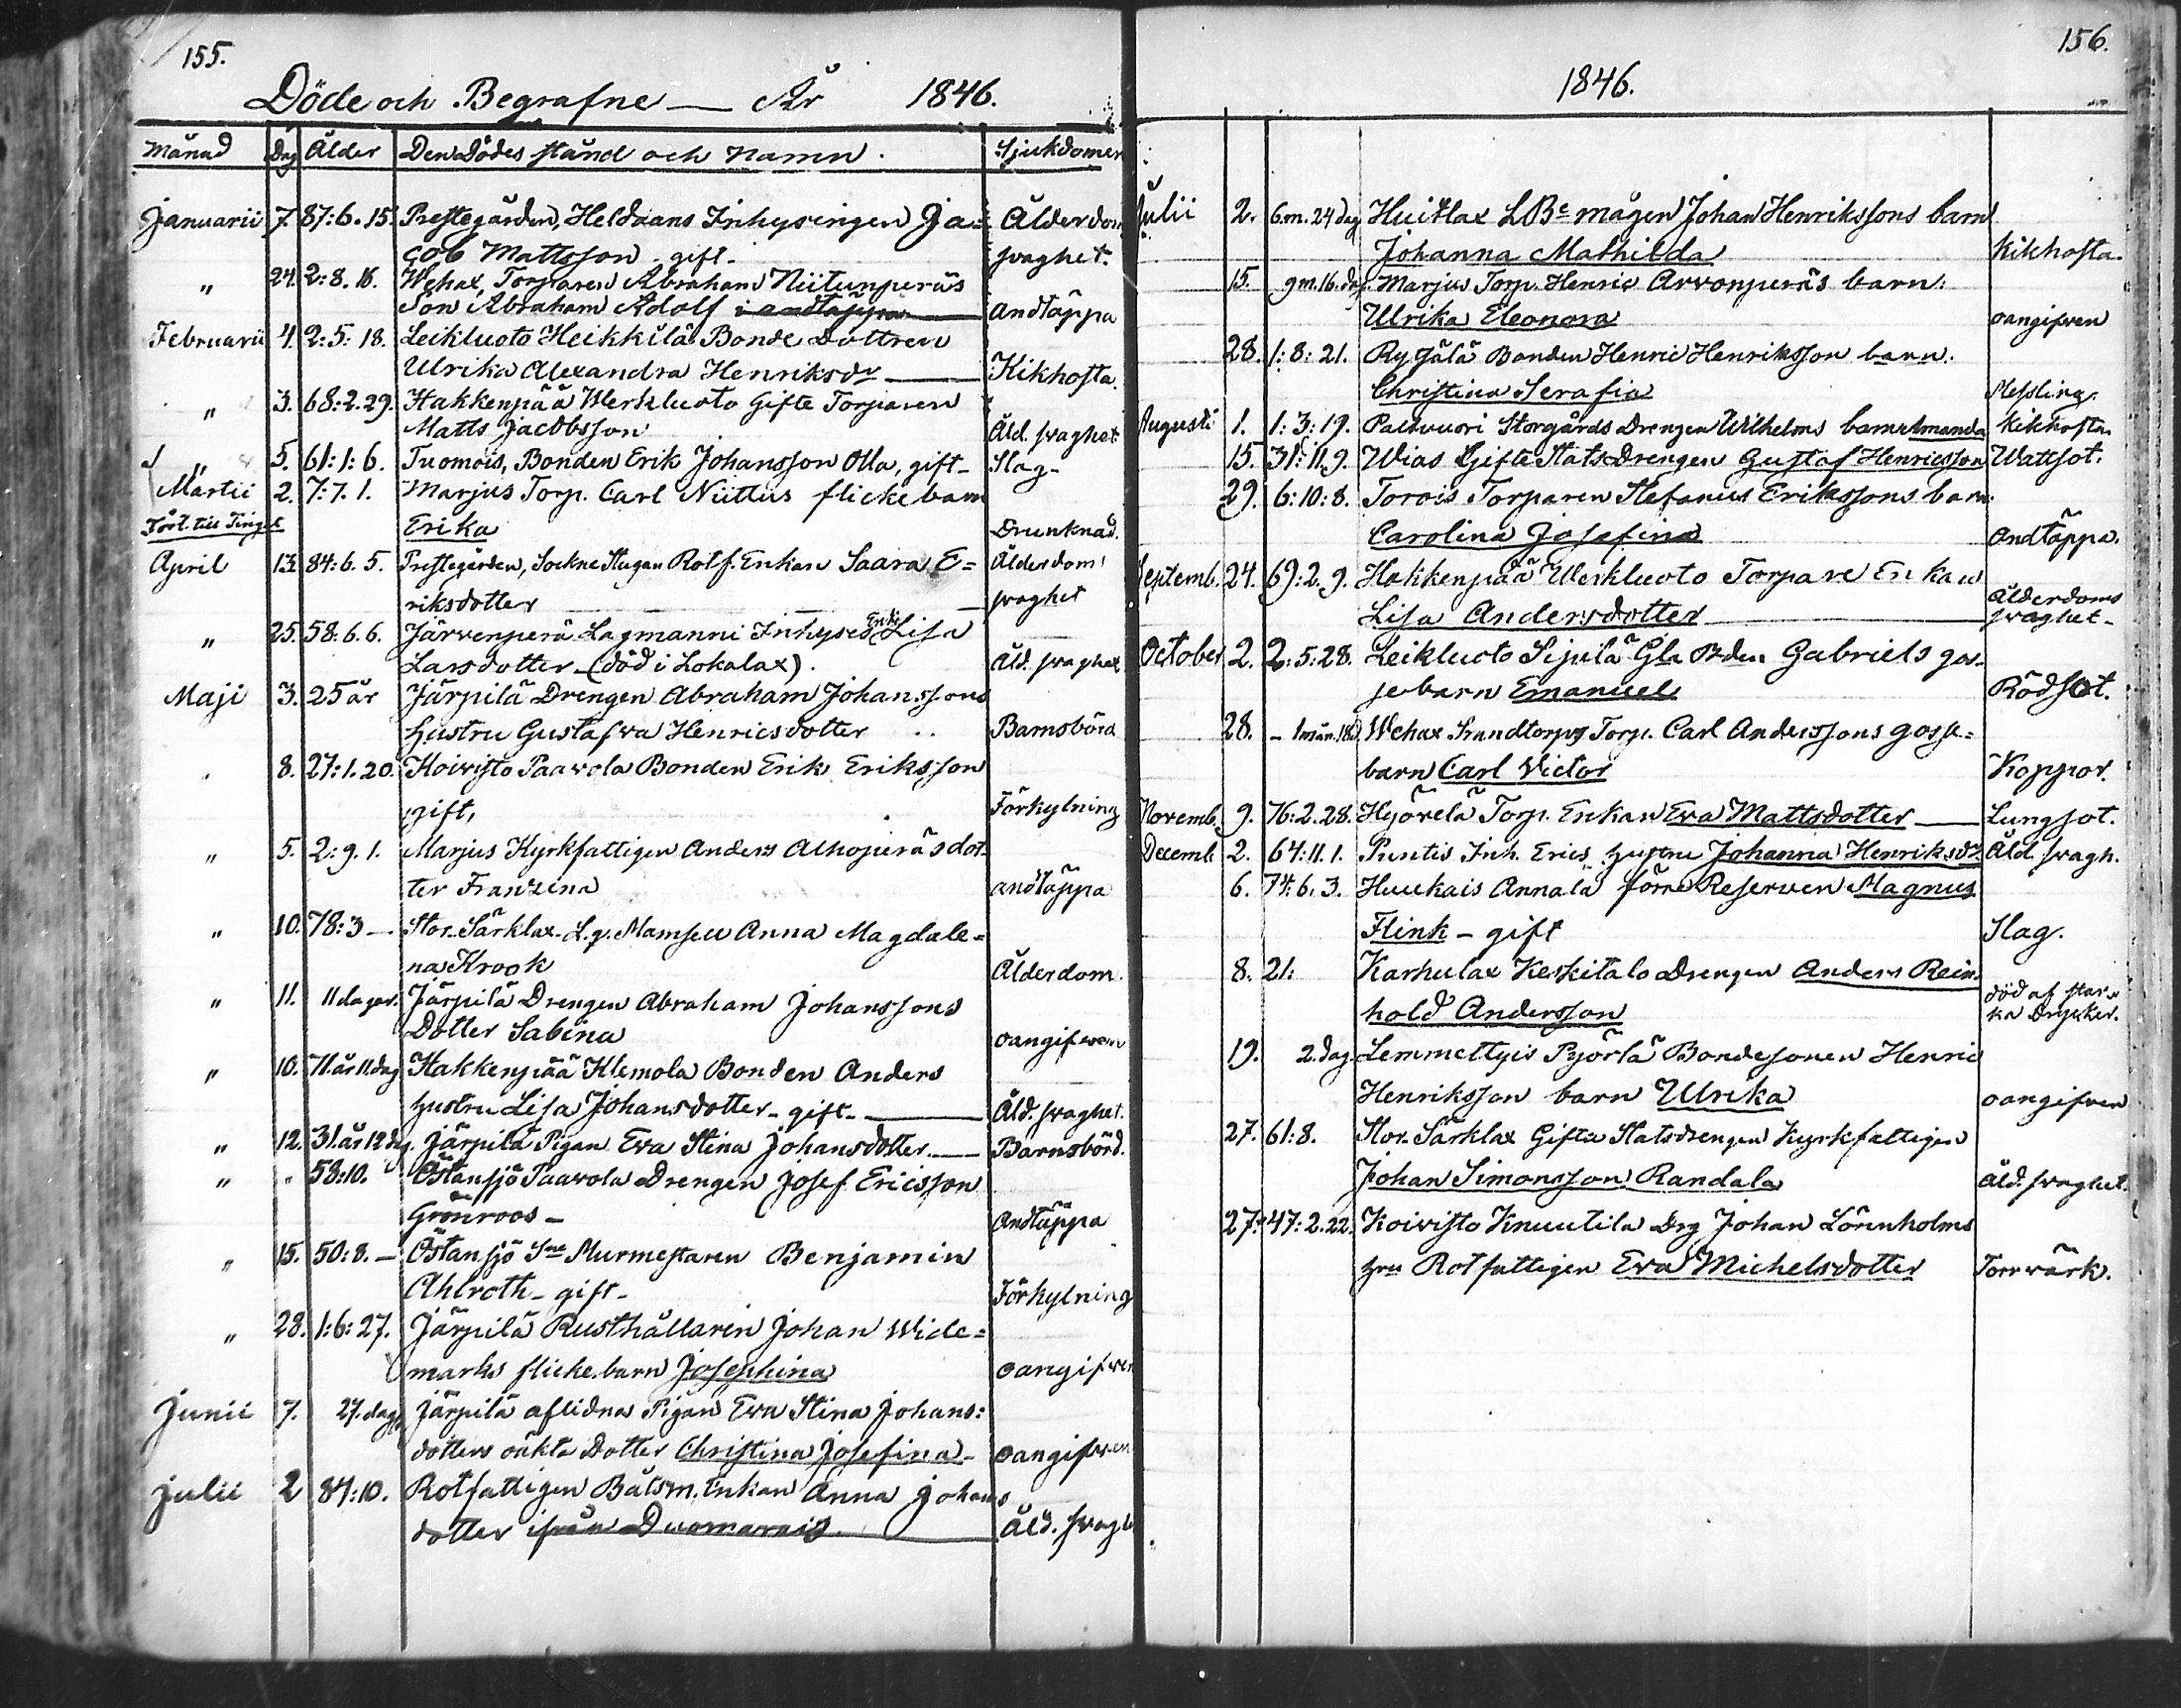 155.
Döde och Begrafne — År 1846.
Månad Dag Ålder Den Dödes stånd och Namn. Sjukdomen
Januarii 7. 87:6.15. Prestegården, Heldaans Inhysingen Ja= Ålderdom
cob Mattsson - gift - svaghet.
" 24. 2:8.16. Wehax, Torparen Abraham Niitunperäs
Son Abraham Adolf i andtäppa Andtäppa
Februarii 4. 2:5:18. Leikluoto Heikkilä Bonde Dottren
Ulrika Alexandra Henriksdr — Kikhosta.
" 3. 68:2.29. Hakkenpää Werkluoto Gifte Torparen
Matts Jacobsson Åld. svaghet
" 5. 61:1:6. Tuomois, Bonden Erik Johansson Olla, gift - Slag -
Martii 2. 7:7.1. Marjus Torp. Carl Niittus flickebarn
Erika Drunknad.
April 13. 84:6.5. Prestegården, Sockne Stugan Rotf. Enkan Saara E= Ålderdoms
riksdotter — svaghet
" 25. 58.6.6. Järvenperä Lagmanni Inhyses Enk. Lisa
Larsdotter - (död i Lokalax). Åld. svaghet
Maji 3. 25 år Järpilä Drengen Abraham Johanssons
hustru Gustafva Henricsdotter .. Barnsbörd
8. 27:1.20. Koivisto Paavola Bonden Erik Eriksson
gift, Förkylning
" 5. 2:9.1. Marjus Kyrkfattigen Anders Alhoperäs dot-
ter Franzina andtäppa
" 10. 78:3 — Stor-Särklax L.g. Mamsell Anna Magdale=
na Krook Ålderdom.
" 11. 11 dagar. Järpilä Drengen Abraham Johanssons
Dotter Sabina oangifven
" 10. 71 år 11. dag Hakkenpää Klemola Bonden Anders
hustru Lisa Johansdotter - gift - — Åld. svaghet.
" 12. 31. år 12 dag. Järpilä Pigan Eva Stina Johansdotter. — Barnsbörd.
" " 58:10. Östansjö Paavola Drengen Josef Ericsson
Grönroos - Andtäppa
" 15. 50:8. — Östansjö Sne Murmestaren Benjamin
Ahlroth - gift - Förkylning
" 28. 1:6:27. Järpilä Rusthållaren Johan Wide=
marks flickebarn Josephina oangifven
Junii 7. 27. dag. Järpilä aflidna Pigan Eva Stina Johans:
dotters oäkta Dotter Christina Josefina - oangifven
Julii 2 84:10. Rotfattigen Båtsm. Enkan Anna Johans
dotter ifrån Duomarais. Åld. svagh
156.
1846.
Julii 2. 6.m. 24 dag Huitlax L Be mågen Johan Henrikssons barn
Johanna Mathilda Kikhosta.
15. 9 m. 16. dag. Marjus Torp. Henric Arvonperäs barn:
Ulrika Eleonora oangifven
28. 1:8:21. Rytjälä Bonden Henric Henriksson barn.
Christina Serafia Messling.
Augusti 1. 1:3:19. Palvuori Storgårds Drengen Wilhelms barn Amanda Kikhosta
15. 31:11.9. Wias Gifte Statsdrengen Gustaf Henricsson Wattsot.
29. 6:10:8. Torois Torparen Stefanus Erikssons barn
Carolina Josefina Andtäppa.
Septemb. 24. 69:2.9. Hakkenpää Werkluoto Torpare Enkan
Lisa Andersdotter — Ålderdoms
svaghet -
October 2. 2:5:28. Leikluoto Sipilä Gla Bden Gabriels gos-
sebarn Emanuel Rödsot.
28. - 1 mån. 18 d. Wehax Strandtorps Torp. Carl Anderssons gosse=
barn Carl Victor Koppor.
Novemb. 9. 76:2.28. Hyörelä Torp. Enkan Eva Mattsdotter — Lungsot.
Decemb. 2. 64:11.1. Puntis Inh. Erics hustru Johanna Henriksdr Åld. svagh.
6. 74:6.3. Huukais Annala förre Reserven Magnus
Flink - gift Slag.
8. 21: Karhulax Keskitalo Drengen Anders Rein
hold Andersson död af star-
ka Drycker.
19. 2. dag. Lemmettyis Pyörlä Bondesonen Henric
Henriksson barn Ulrika oangifven
27. 61:8. Stor-Särklax Gifta Statsdrengen Kyrkfattigen
Johan Simonsson Randala Åld. svaghet.
27. 47:2.22. Koivisto Knuutila Drg Johan Lörenholms
hru Rotfattigen Eva Michelsdotter Torrvärk.